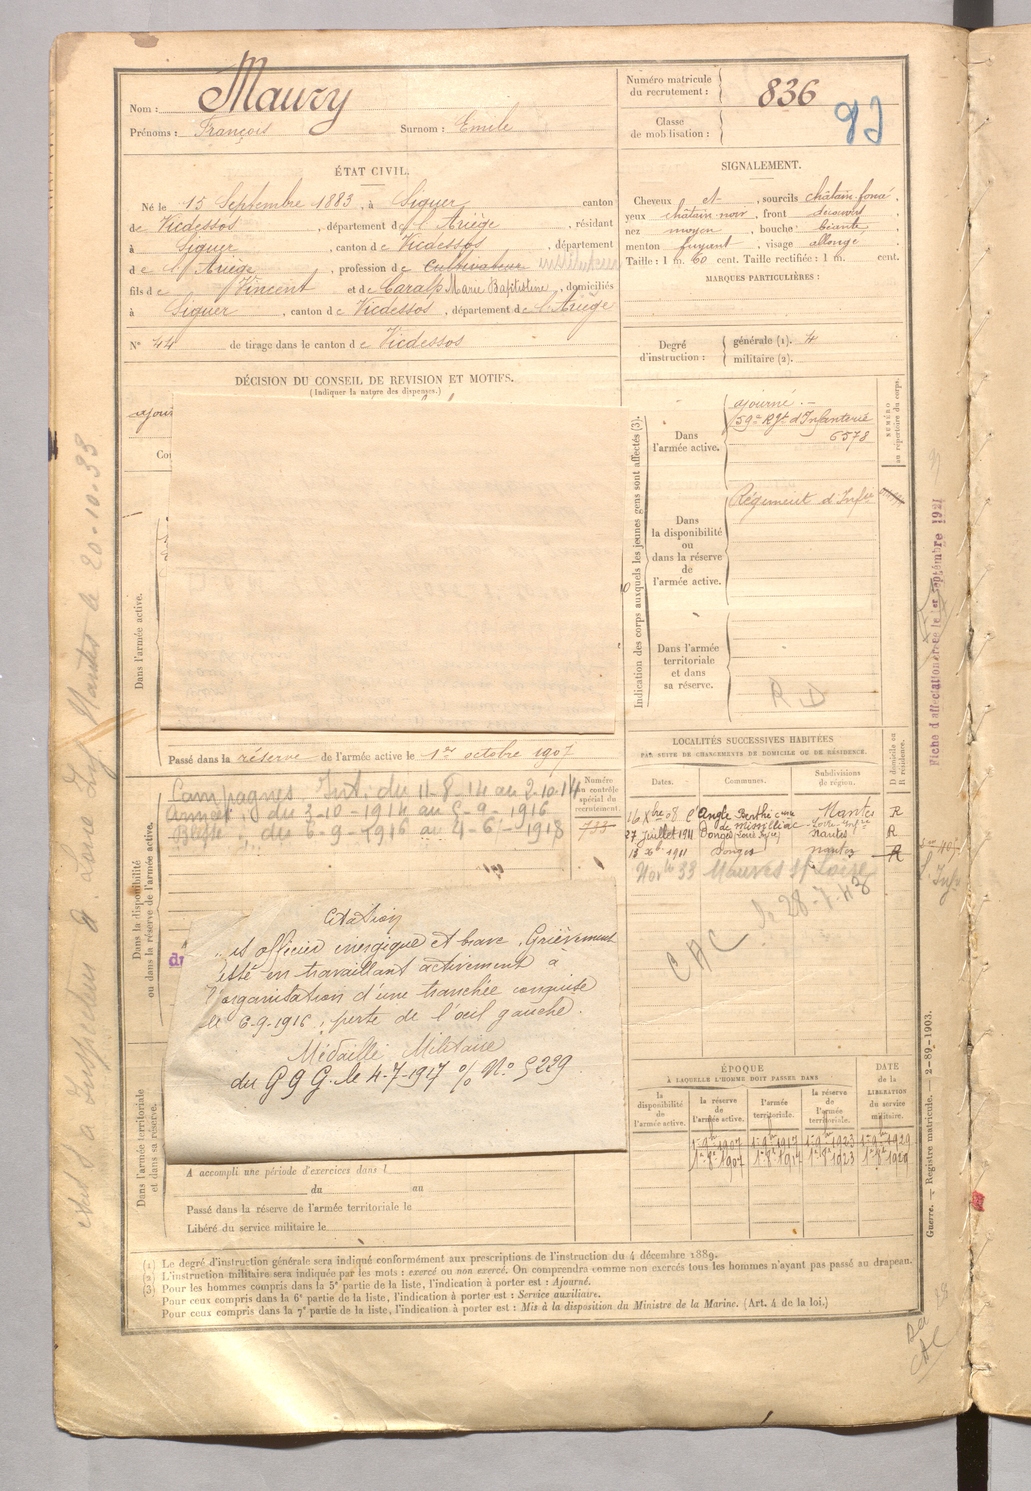 Nom : Maury
Prénoms : François Surnom : Emile
Numéro matricule du recrutement : 836
Classe de mobilisation :
ÉTAT CIVIL.
Né le 15 Septembre 1883, à Siguer canton
de Vicdessos, département de l'Ariège, résidant
à Siguer, canton de Vicdessos, département
de l'Ariège, profession de Cultivateur
fils de Vincent et de Caralp Marie Baptistine, domiciliés
à Siguer, canton de Vicdessos, département de l'Ariège
N° 44 de tirage dans le canton de Vicdessos
SIGNALEMENT.
Cheveux et, sourcils châtain foncé,
yeux châtain-noir, front découvert
nez moyen, bouche béante,
menton fuyant, visage allongé
Taille : 1 m. 60 cent. Taille rectifiée : 1 m. cent.
MARQUES PARTICULIÈRES :
Degré d'instruction : générale (1). 4
militaire (2).
DÉCISION DU CONSEIL DE REVISION ET MOTIFS.
(Indiquer la nature des dispenses.)
Indication des corps auxquels les jeunes gens sont affectés (3).
NUMÉRO au répertoire du corps.
Dans l'armée active.
ajourné. -
59e Rgt d'Infanterie
6578
Dans la disponibilité ou dans la réserve de l'armée active.
Régiment d'Infie
Dans l'armée territoriale et dans sa réserve.
R D
Dans l'armée active.
Passé dans la réserve de l'armée active le 1er octobre 1907
Numéro au contrôle spécial du recrutement.
733
Dans la disponibilité ou dans la réserve de l'armée active.
Campagnes Int. du 11-8-14 au 2-10-14
Armée du 3-10-1914 au 5-9-1916
Blessé du 6-9-1916 au 4-6-1918
Citation
officier énergique et brave. Grièvement
en travaillant activement à
l'organisation d'une tranchée conquise
le 6-9-1916 ; perte de l'œil gauche.
Médaille Militaire
du G Q G. le 4-7-1917 % N° 5229
LOCALITÉS SUCCESSIVES HABITÉES
PAR SUITE DE CHANGEMENTS DE DOMICILE OU DE RÉSIDENCE.
D domicile ou R résidence.
Dates. Communes. Subdivisions de région.
16 Xbre 08 Nantes R
de Missillac Loire-Infre
27 Juillet 1911 Donges (Loire Infre) Nantes R
1911 Donges Nantes R
33 Mauves s/ Loire
28-7-43
CAC
ÉPOQUE
À LAQUELLE L'HOMME DOIT PASSER DANS
la disponibilité de l'armée active.
la réserve de l'armée active.
l'armée territoriale.
la réserve de l'armée territoriale.
DATE de la LIBÉRATION du service militaire.
1907 1917 1923 1929
1907 1917 1923 1929
Dans l'armée territoriale et dans sa réserve.
A accompli une période d'exercices dans l
du au
Passé dans la réserve de l'armée territoriale le
Libéré du service militaire le
(1) Le degré d'instruction générale sera indiqué conformément aux prescriptions de l'instruction du 4 décembre 1889.
(2) L'instruction militaire sera indiquée par les mots : exercé ou non exercé. On comprendra comme non exercés tous les hommes n'ayant pas passé au drapeau.
(3) Pour les hommes compris dans la 5e partie de la liste, l'indication à porter est : Ajourné.
Pour ceux compris dans la 6e partie de la liste, l'indication à porter est : Service auxiliaire.
Pour ceux compris dans la 7e partie de la liste, l'indication à porter est : Mis à la disposition du Ministre de la Marine. (Art. 4 de la loi.)
Guerre. — Registre matricule. — 2-89-1903.
Fiche d'affectation septembre 1921
Loire Inf. Nantes le 20-10-33
CAC